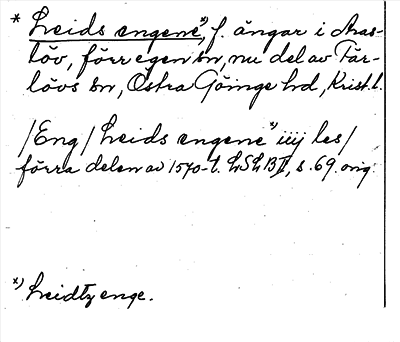 * Leids engene*), f. ängar i Aras-
löv, förr egen sn, nu del av Fär-
lövs sn, Östra Göinge hd, Krist. l.
/Eng/ Leids engene*) iiij les/
förra delen av 1570-t. LSLB II, s. 69. orig.
*) Leidtz enge.